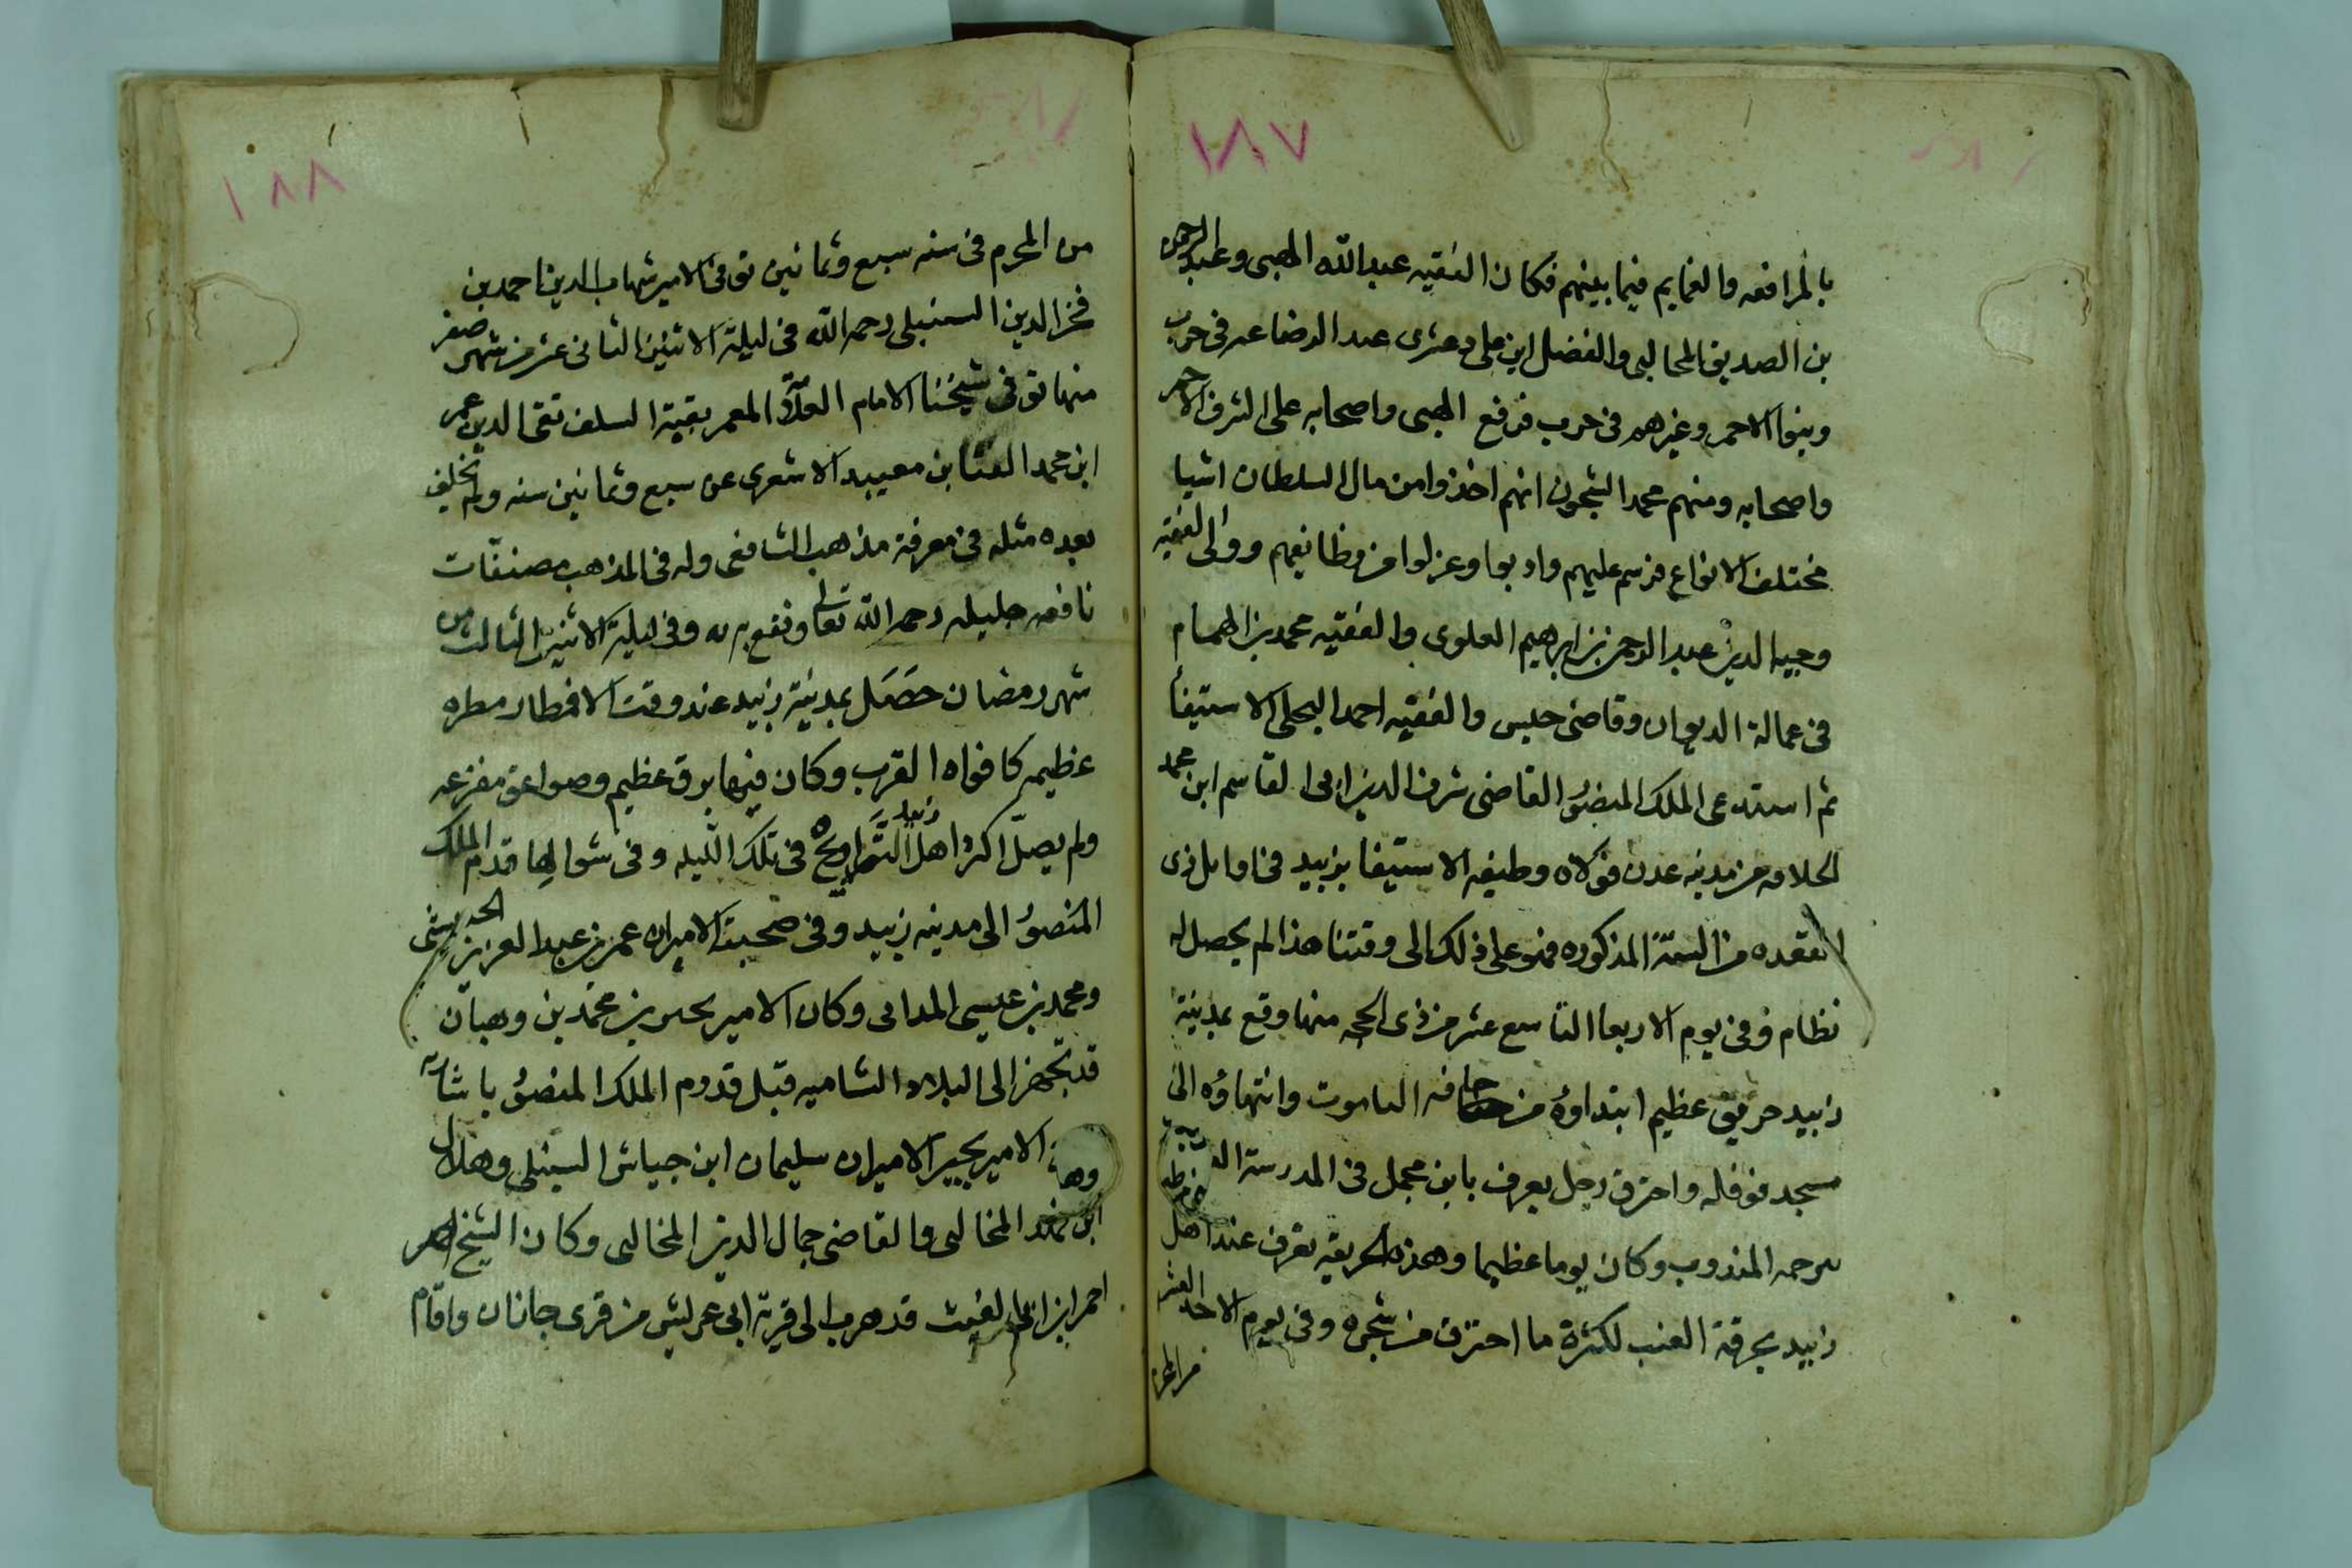 ١٨٧
بالمرافعه والنمايم فيما بينهم فكان الفقيه عبد الله الهبى وعبد الرحمن
بن الصديق المحالبى والفضل ابن على دعثرى عبد الرضاعه فى حرب
وبنوا الاحمر وغيرهم فى حرب فرفع الهبى واصحابه على الشرف الاحمر
واصحابه ومنهم محمد الشجون انهم اخذوا من مال السلطان اشيا
مختلفه الانواع فرسم عليهم وادبوا وعزلوا من وظائفهم وولى الفقيه
وجيه الدين عبد الرحمن بن ابرهيم العلوى والفقيه محمد بن الهمام
فى عمالة الديوان وقاضى حيس والفقيه احمد البجلى الاستيفأ
ثم استدعى الملك المنصور القاضى شرف الدين ابى القاسم ابن محمد
الحلامه من مدينه عدن فولاه وظيفه الاستيفا بزبيد فى اوايل ذى
القعده من السنة المذكوره فهو على ذلك الى وقتنا هذا لم يحصل له
نظام وفى يوم الاربعا التاسع عشر من ذى الحجه منها وقع بمدينة
زبيد حريق عظيم ابتداوه من حافه الناموت وانتهاوه الى
مسجد نوفله واحترق رجل يعرف بابن مجمل فى المدرسة
سرحه المنذوب وكان يوما عظيما وهذه الحريقه تعرف عند اهل
زبيد بحرقة العنب لكثرة ما احترق من شجره وفى يوم الاحد العشر
من المحرم
١٨٨
من المحرم فى سنه سبع وثمانين توفى الامير شهاب الدين احمد بن
فخر الدين السنبلى رحمه الله فى ليلة الاثنين الثانى عشر من شهر صفر
منها توفى شيخنا الامام العلامة المعمر بقية السلف تقى الدين عمر
ابن محمد الفتا بن معيبد الاشعرى عن سبع وثمانين سنه ولم يخلف
بعده مثله فى معرفة مذهب الشافعى وله فى المذهب مصنفات
نافعه جليله رحمه الله تعالى ونفع به وفى ليلة الاثنين الثالث من
شهر رمضان حصل بمدينة زبيد عند وقت الافطار مطره
عظيمه كافواه القرب وكان فيها برق عظيم وصواعق مفزعه
ولم يصل اكثر اهل زبيد التراويح فى تلك الليله وفى شوالها قدم الملك
المنصور الى مدينه زبيد وفى صحبته الاميران عمر بن عبد العزيز الحبيشى
ومحمد بن عيسى المدابى وكان الامير يحيى بن محمد بن وهبان
قد تجهز الى البلاد الشاميه قبل قدوم الملك المنصور باشاره
الامير بحير الاميران سليمان ابن جياش السنبلى وهلال
ابن محمد المخالبى والقاضى جمال الدين المخالبى وكان الشيخ
احمد ابن ابى الغيث قد هرب الى قرية ابى عريش من قرى جازان واقام